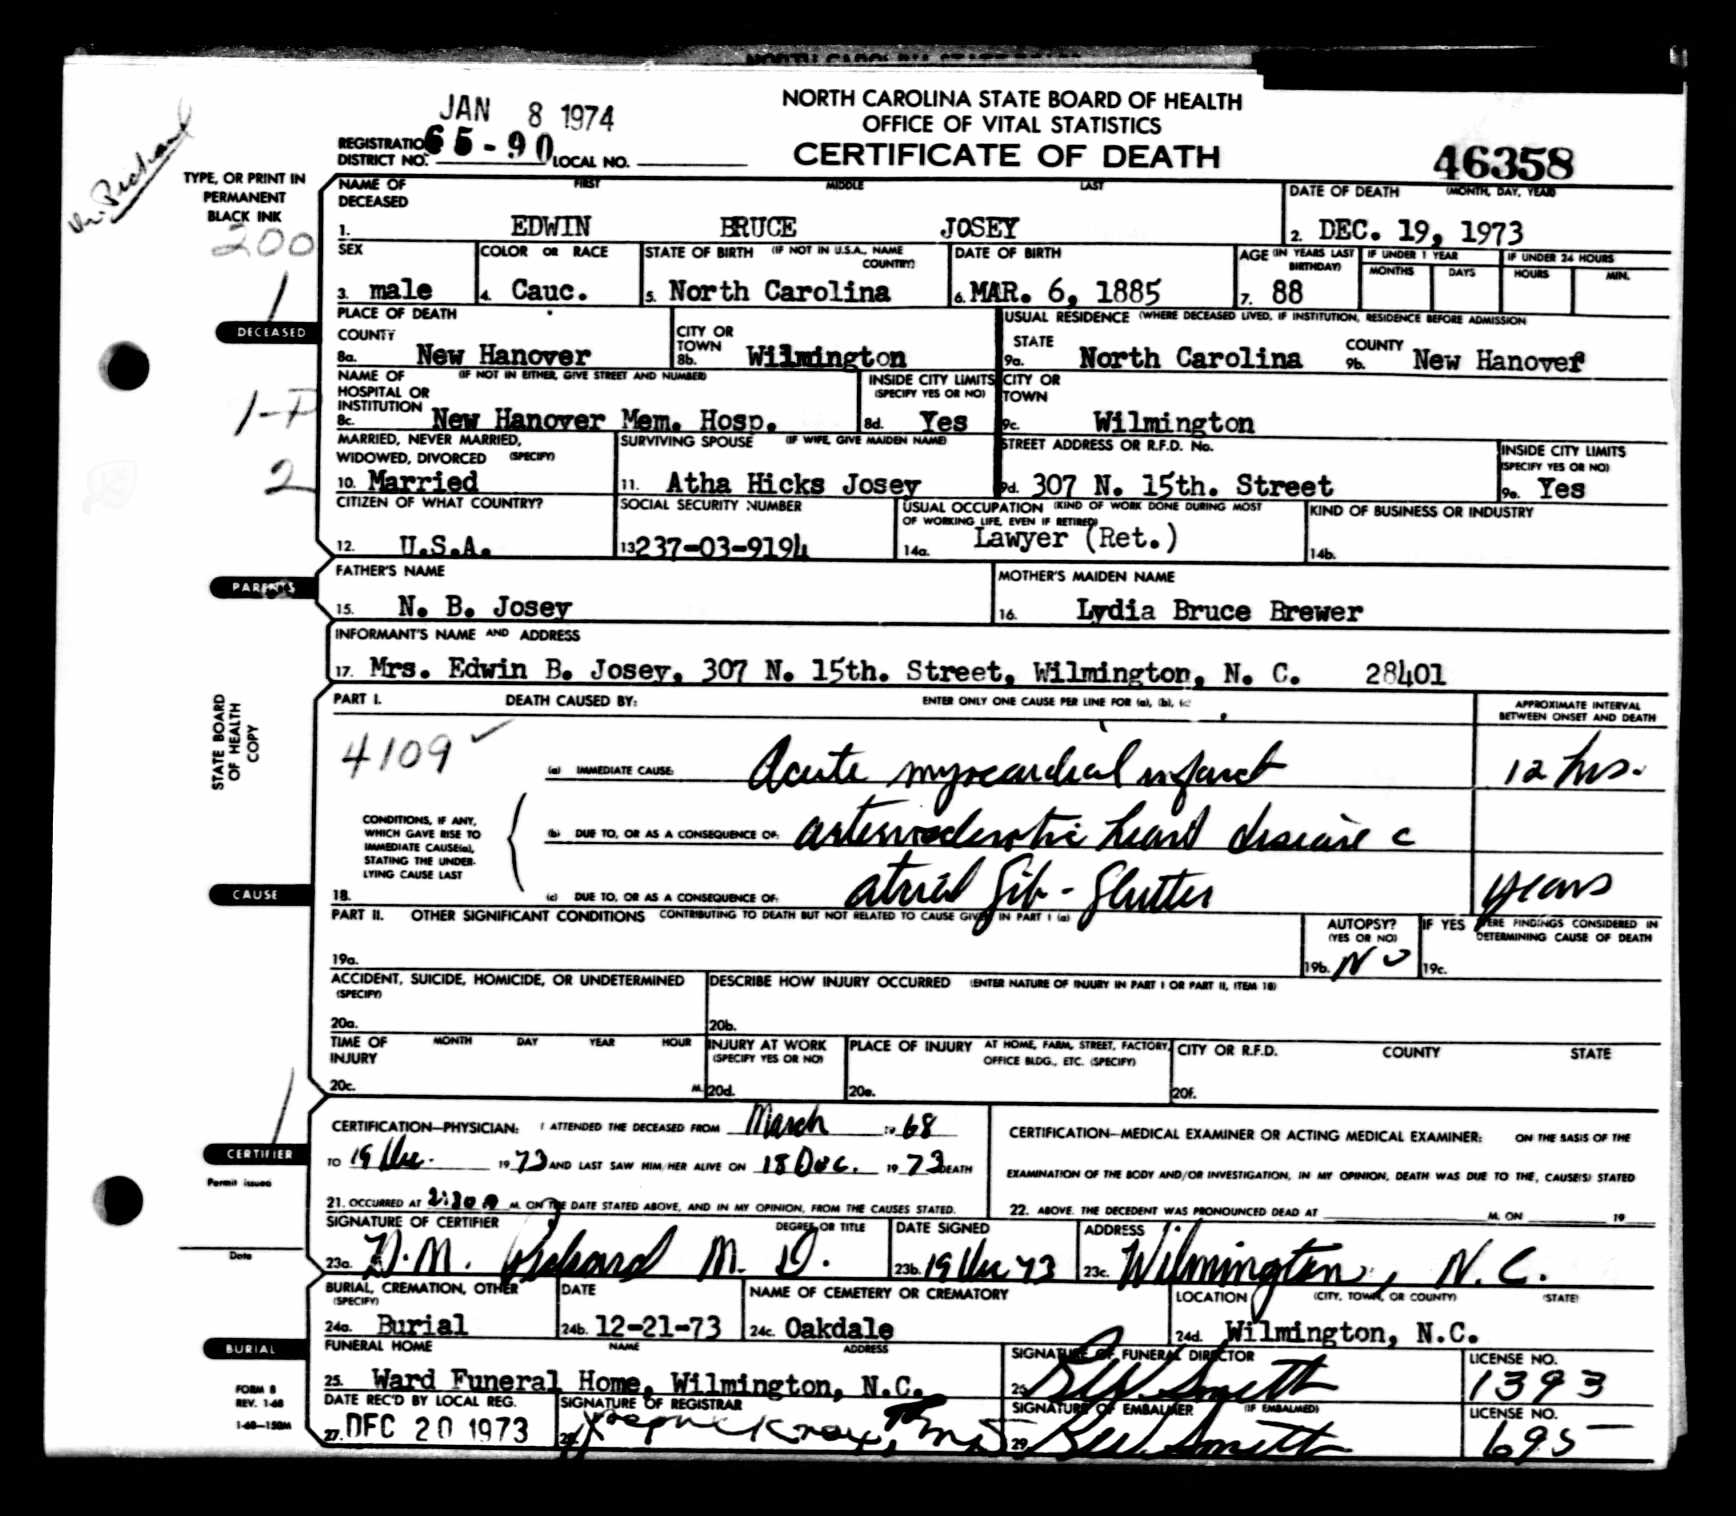 NORTH CAROLINA STATE BOARD OF HEALTH
OFFICE OF VITAL STATISTICS
CERTIFICATE OF DEATH
JAN 8 1974
REGISTRATION DISTRICT NO. 65-90 LOCAL NO.
46358
TYPE, OR PRINT IN
PERMANENT
BLACK INK
200
1
DECEASED
NAME OF DECEASED FIRST MIDDLE LAST
1. EDWIN BRUCE JOSEY
DATE OF DEATH (MONTH, DAY, YEAR)
2. DEC. 19, 1973
SEX
3. male
COLOR OR RACE
4. Cauc.
STATE OF BIRTH (IF NOT IN U.S.A., NAME COUNTRY)
5. North Carolina
DATE OF BIRTH
6. MAR. 6, 1885
AGE (IN YEARS LAST BIRTHDAY)
7. 88
IF UNDER 1 YEAR
MONTHS DAYS
IF UNDER 24 HOURS
HOURS MIN.
PLACE OF DEATH
COUNTY
8a. New Hanover
CITY OR TOWN
8b. Wilmington
USUAL RESIDENCE (WHERE DECEASED LIVED, IF INSTITUTION, RESIDENCE BEFORE ADMISSION
STATE
9a. North Carolina
COUNTY
9b. New Hanover
1-P
NAME OF HOSPITAL OR INSTITUTION (IF NOT IN EITHER, GIVE STREET AND NUMBER)
8c. New Hanover Mem. Hosp.
INSIDE CITY LIMITS (SPECIFY YES OR NO)
8d. Yes
CITY OR TOWN
9c. Wilmington
2
MARRIED, NEVER MARRIED, WIDOWED, DIVORCED (SPECIFY)
10. Married
SURVIVING SPOUSE (IF WIFE, GIVE MAIDEN NAME)
11. Atha Hicks Josey
STREET ADDRESS OR R.F.D. No.
9d. 307 N. 15th. Street
INSIDE CITY LIMITS (SPECIFY YES OR NO)
9e. Yes
CITIZEN OF WHAT COUNTRY?
12. U.S.A.
SOCIAL SECURITY NUMBER
13. 237-03-9194
USUAL OCCUPATION (KIND OF WORK DONE DURING MOST OF WORKING LIFE, EVEN IF RETIRED)
14a. Lawyer (Ret.)
KIND OF BUSINESS OR INDUSTRY
14b.
PARENTS
FATHER'S NAME
15. N. B. Josey
MOTHER'S MAIDEN NAME
16. Lydia Bruce Brewer
INFORMANT'S NAME AND ADDRESS
17. Mrs. Edwin B. Josey, 307 N. 15th. Street, Wilmington, N. C. 28401
STATE BOARD
OF HEALTH
COPY
PART I. DEATH CAUSED BY: ENTER ONLY ONE CAUSE PER LINE FOR (a), (b), (c
APPROXIMATE INTERVAL BETWEEN ONSET AND DEATH
4109
(a) IMMEDIATE CAUSE: Acute myocardial infarct 12 hrs.
CONDITIONS, IF ANY,
WHICH GAVE RISE TO
IMMEDIATE CAUSE(a),
STATING THE UNDER-
LYING CAUSE LAST
(b) DUE TO, OR AS A CONSEQUENCE OF: arteriosclerotic heart disease c
CAUSE
18.
(c) DUE TO, OR AS A CONSEQUENCE OF: atrial fib-flutter years
PART II. OTHER SIGNIFICANT CONDITIONS CONTRIBUTING TO DEATH BUT NOT RELATED TO CAUSE GIVEN IN PART I (a)
19a.
AUTOPSY? (YES OR NO)
19b. No
IF YES WERE FINDINGS CONSIDERED IN DETERMINING CAUSE OF DEATH
19c.
ACCIDENT, SUICIDE, HOMICIDE, OR UNDETERMINED (SPECIFY)
20a.
DESCRIBE HOW INJURY OCCURRED (ENTER NATURE OF INJURY IN PART I OR PART II, ITEM 18)
20b.
TIME OF INJURY MONTH DAY YEAR HOUR
20c. M.
INJURY AT WORK (SPECIFY YES OR NO)
20d.
PLACE OF INJURY AT HOME, FARM, STREET, FACTORY, OFFICE BLDG., ETC. (SPECIFY)
20e.
CITY OR R.F.D. COUNTY STATE
20f.
1
CERTIFIER
Permit issued
Date
CERTIFICATION—PHYSICIAN: I ATTENDED THE DECEASED FROM March 19 68
TO 19 Dec. 19 73 AND LAST SAW HIM/HER ALIVE ON 18 Dec. 19 73 DEATH
21. OCCURRED AT M. ON THE DATE STATED ABOVE, AND IN MY OPINION, FROM THE CAUSES STATED.
CERTIFICATION—MEDICAL EXAMINER OR ACTING MEDICAL EXAMINER: ON THE BASIS OF THE
EXAMINATION OF THE BODY AND/OR INVESTIGATION, IN MY OPINION, DEATH WAS DUE TO THE, CAUSE(S) STATED
22. ABOVE. THE DECEDENT WAS PRONOUNCED DEAD AT M. ON 19
SIGNATURE OF CERTIFIER DEGREE OR TITLE
23a. M. D.
DATE SIGNED
23b. 19 Dec 73
ADDRESS
23c. Wilmington, N.C.
BURIAL
BURIAL, CREMATION, OTHER (SPECIFY)
24a. Burial
DATE
24b. 12-21-73
NAME OF CEMETERY OR CREMATORY
24c. Oakdale
LOCATION (CITY, TOWN, OR COUNTY) (STATE)
24d. Wilmington, N.C.
FUNERAL HOME NAME ADDRESS
25. Ward Funeral Home, Wilmington, N.C.
SIGNATURE OF FUNERAL DIRECTOR
26. Smith
LICENSE NO.
1393
FORM 8
REV. 1-68
1-68—150M
DATE REC'D BY LOCAL REG.
27. DEC 20 1973
SIGNATURE OF REGISTRAR
28.
SIGNATURE OF EMBALMER (IF EMBALMED)
29. Smith
LICENSE NO.
695